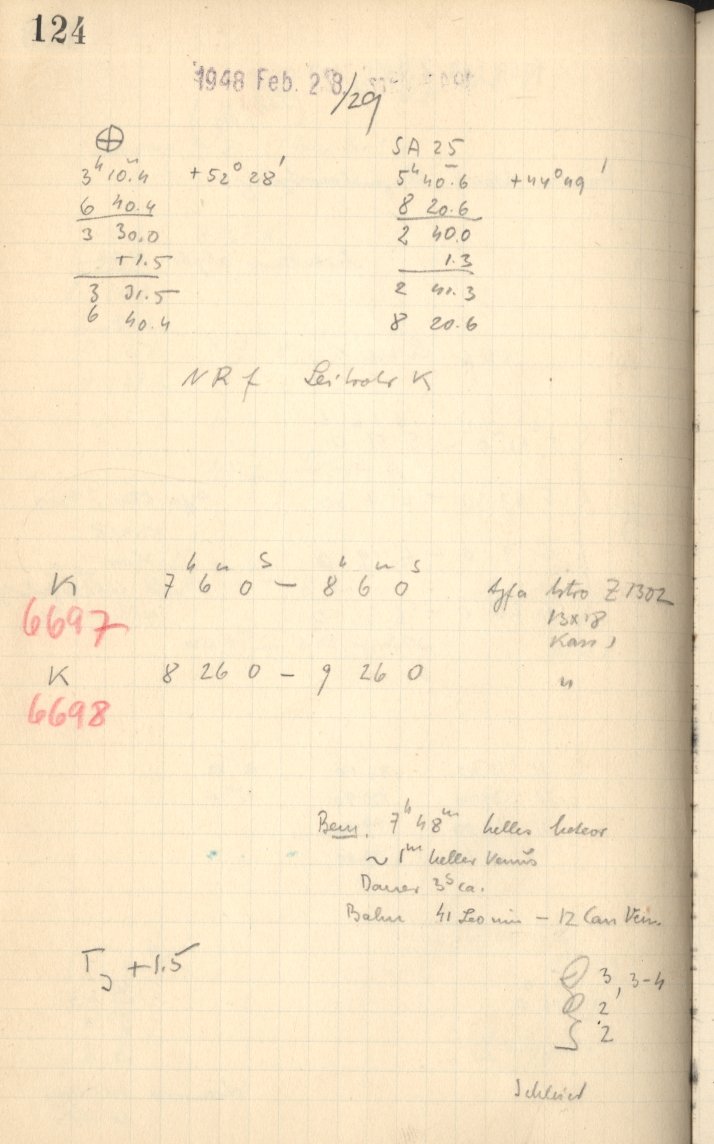 124
1948 Feb. 28./29
⊕
3ʰ 10.4ᵐ +52° 28'
6 40.4
3 30.0
+1.5
3 31.5
6 40.4
SA 25
5ʰ 40.6 +44° 49'
8 20.6
2 40.0
1.3
2 41.3
8 20.6
NRf Leitrohr K
K 7ʰ 6ᵐ 0ˢ – 8ʰ 6ᵐ 0ˢ Agfa Astro Z 1302
6697 13x18
Kass 1
K 8 26 0 – 9 26 0 "
6698
Bem. 7ʰ 48ᵐ helles Meteor
~ 1ᵐ heller Venus
Dauer 3ˢ ca.
Bahn 41 Leo min – 12 Can Ven.
+1.5
3, 3-4
2
2